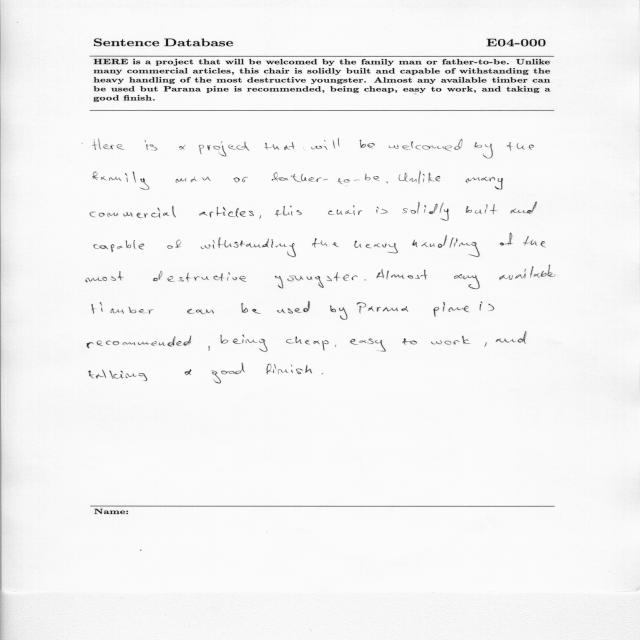 Sentence Database E04-000
HERE is a project that will be welcomed by the family man or father-to-be. Unlike
many commercial articles, this chair is solidly built and capable of withstanding the
heavy handling of the most destructive youngster. Almost any available timber can
be used but Parana pine is recommended, being cheap, easy to work, and taking a
good finish.
Here is a project that will be welcomed by the
family man or father-to-be. Unlike many
commercial articles, this chair is solidly built and
capable of withstanding the heavy handling of the
most destructive youngster. Almost any available
timber can be used by Parana pine is
recommended, being cheap, easy to work, and
talking a good finish.
Name: